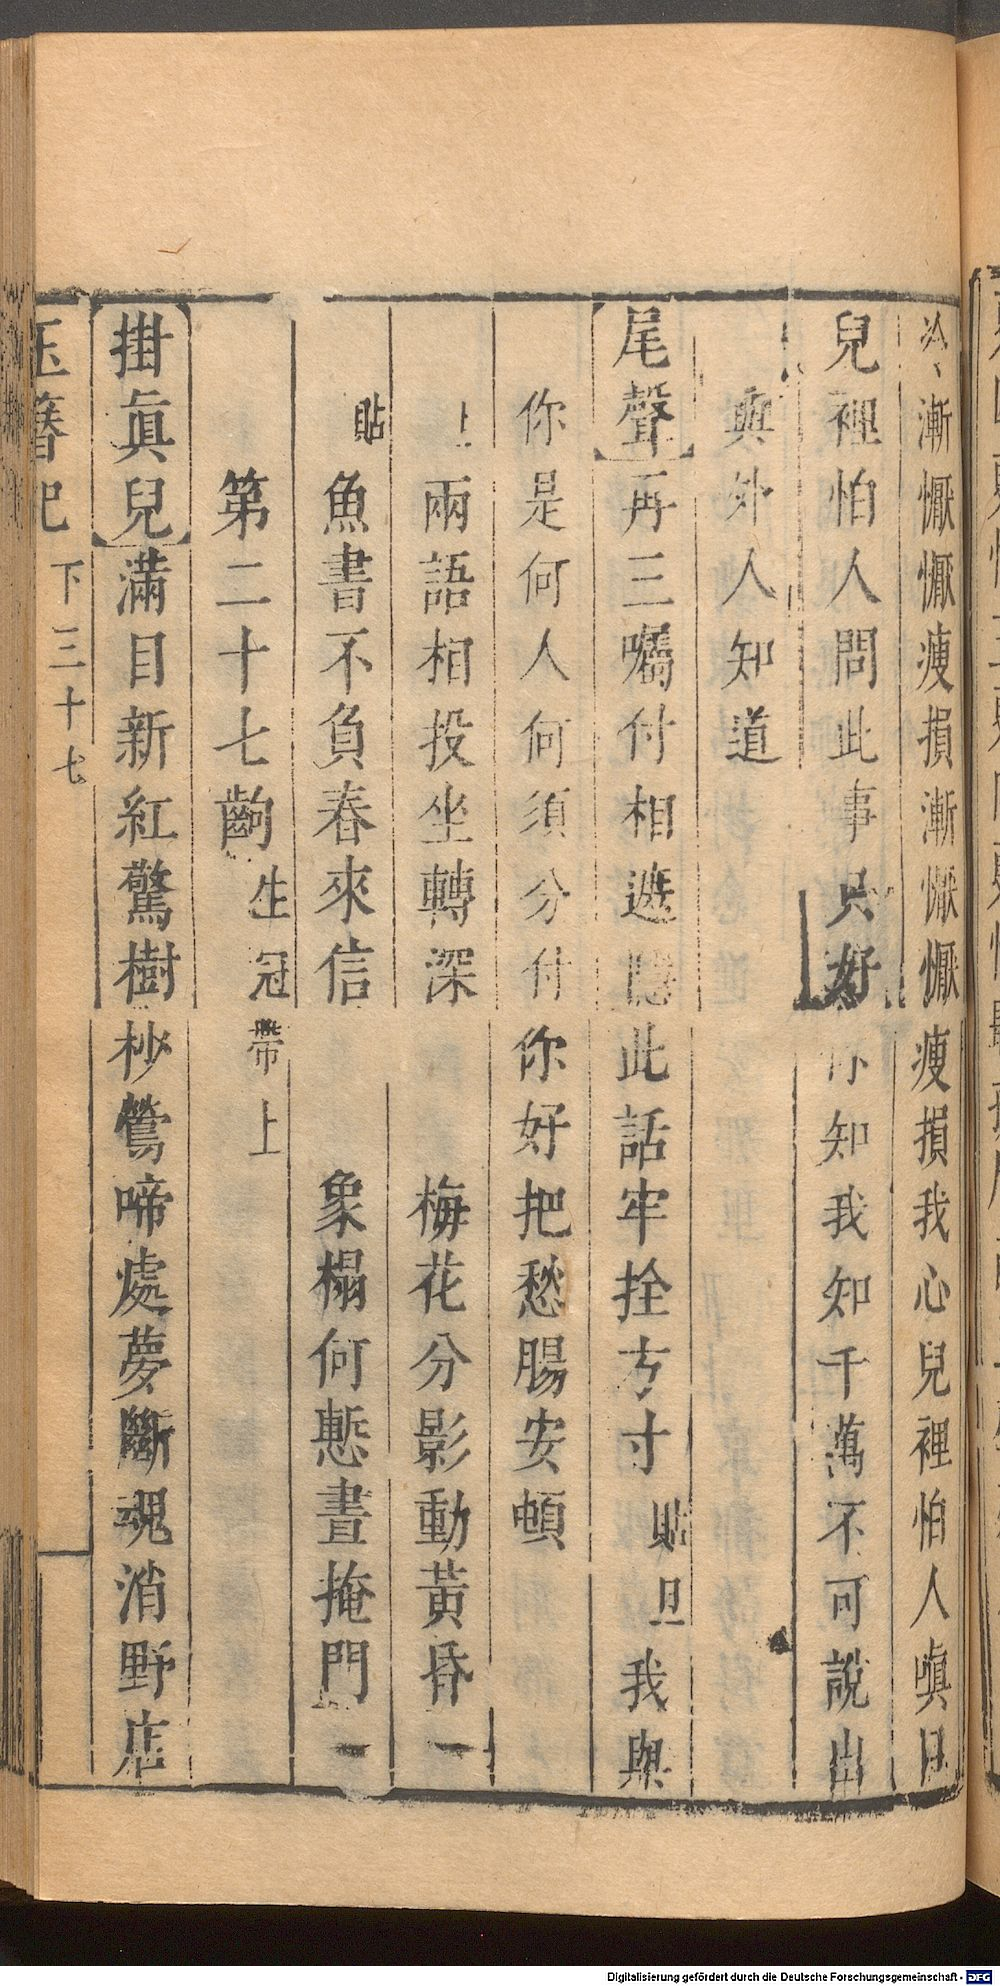 漸懨懨瘦損漸懨懨瘦損我心兒裡怕人嗔口
兒裡怕人問此事只好你知我知千萬不可說出
與外人知道
尾聲再三囑付相遮隱此話牢拴方寸貼旦我與
你是何人何須分付你好把愁腸安頓
上兩語相投坐轉深 梅花分影動黃昏
貼魚書不負春來信 象榻何慙晝掩門
第二十七齣生冠帶上
掛眞兒滿目新紅驚樹杪鶯啼處夢斷魂消野店
玉簪記 下三十七
Digitalisierung gefördert durch die Deutsche Forschungsgemeinschaft - DFG